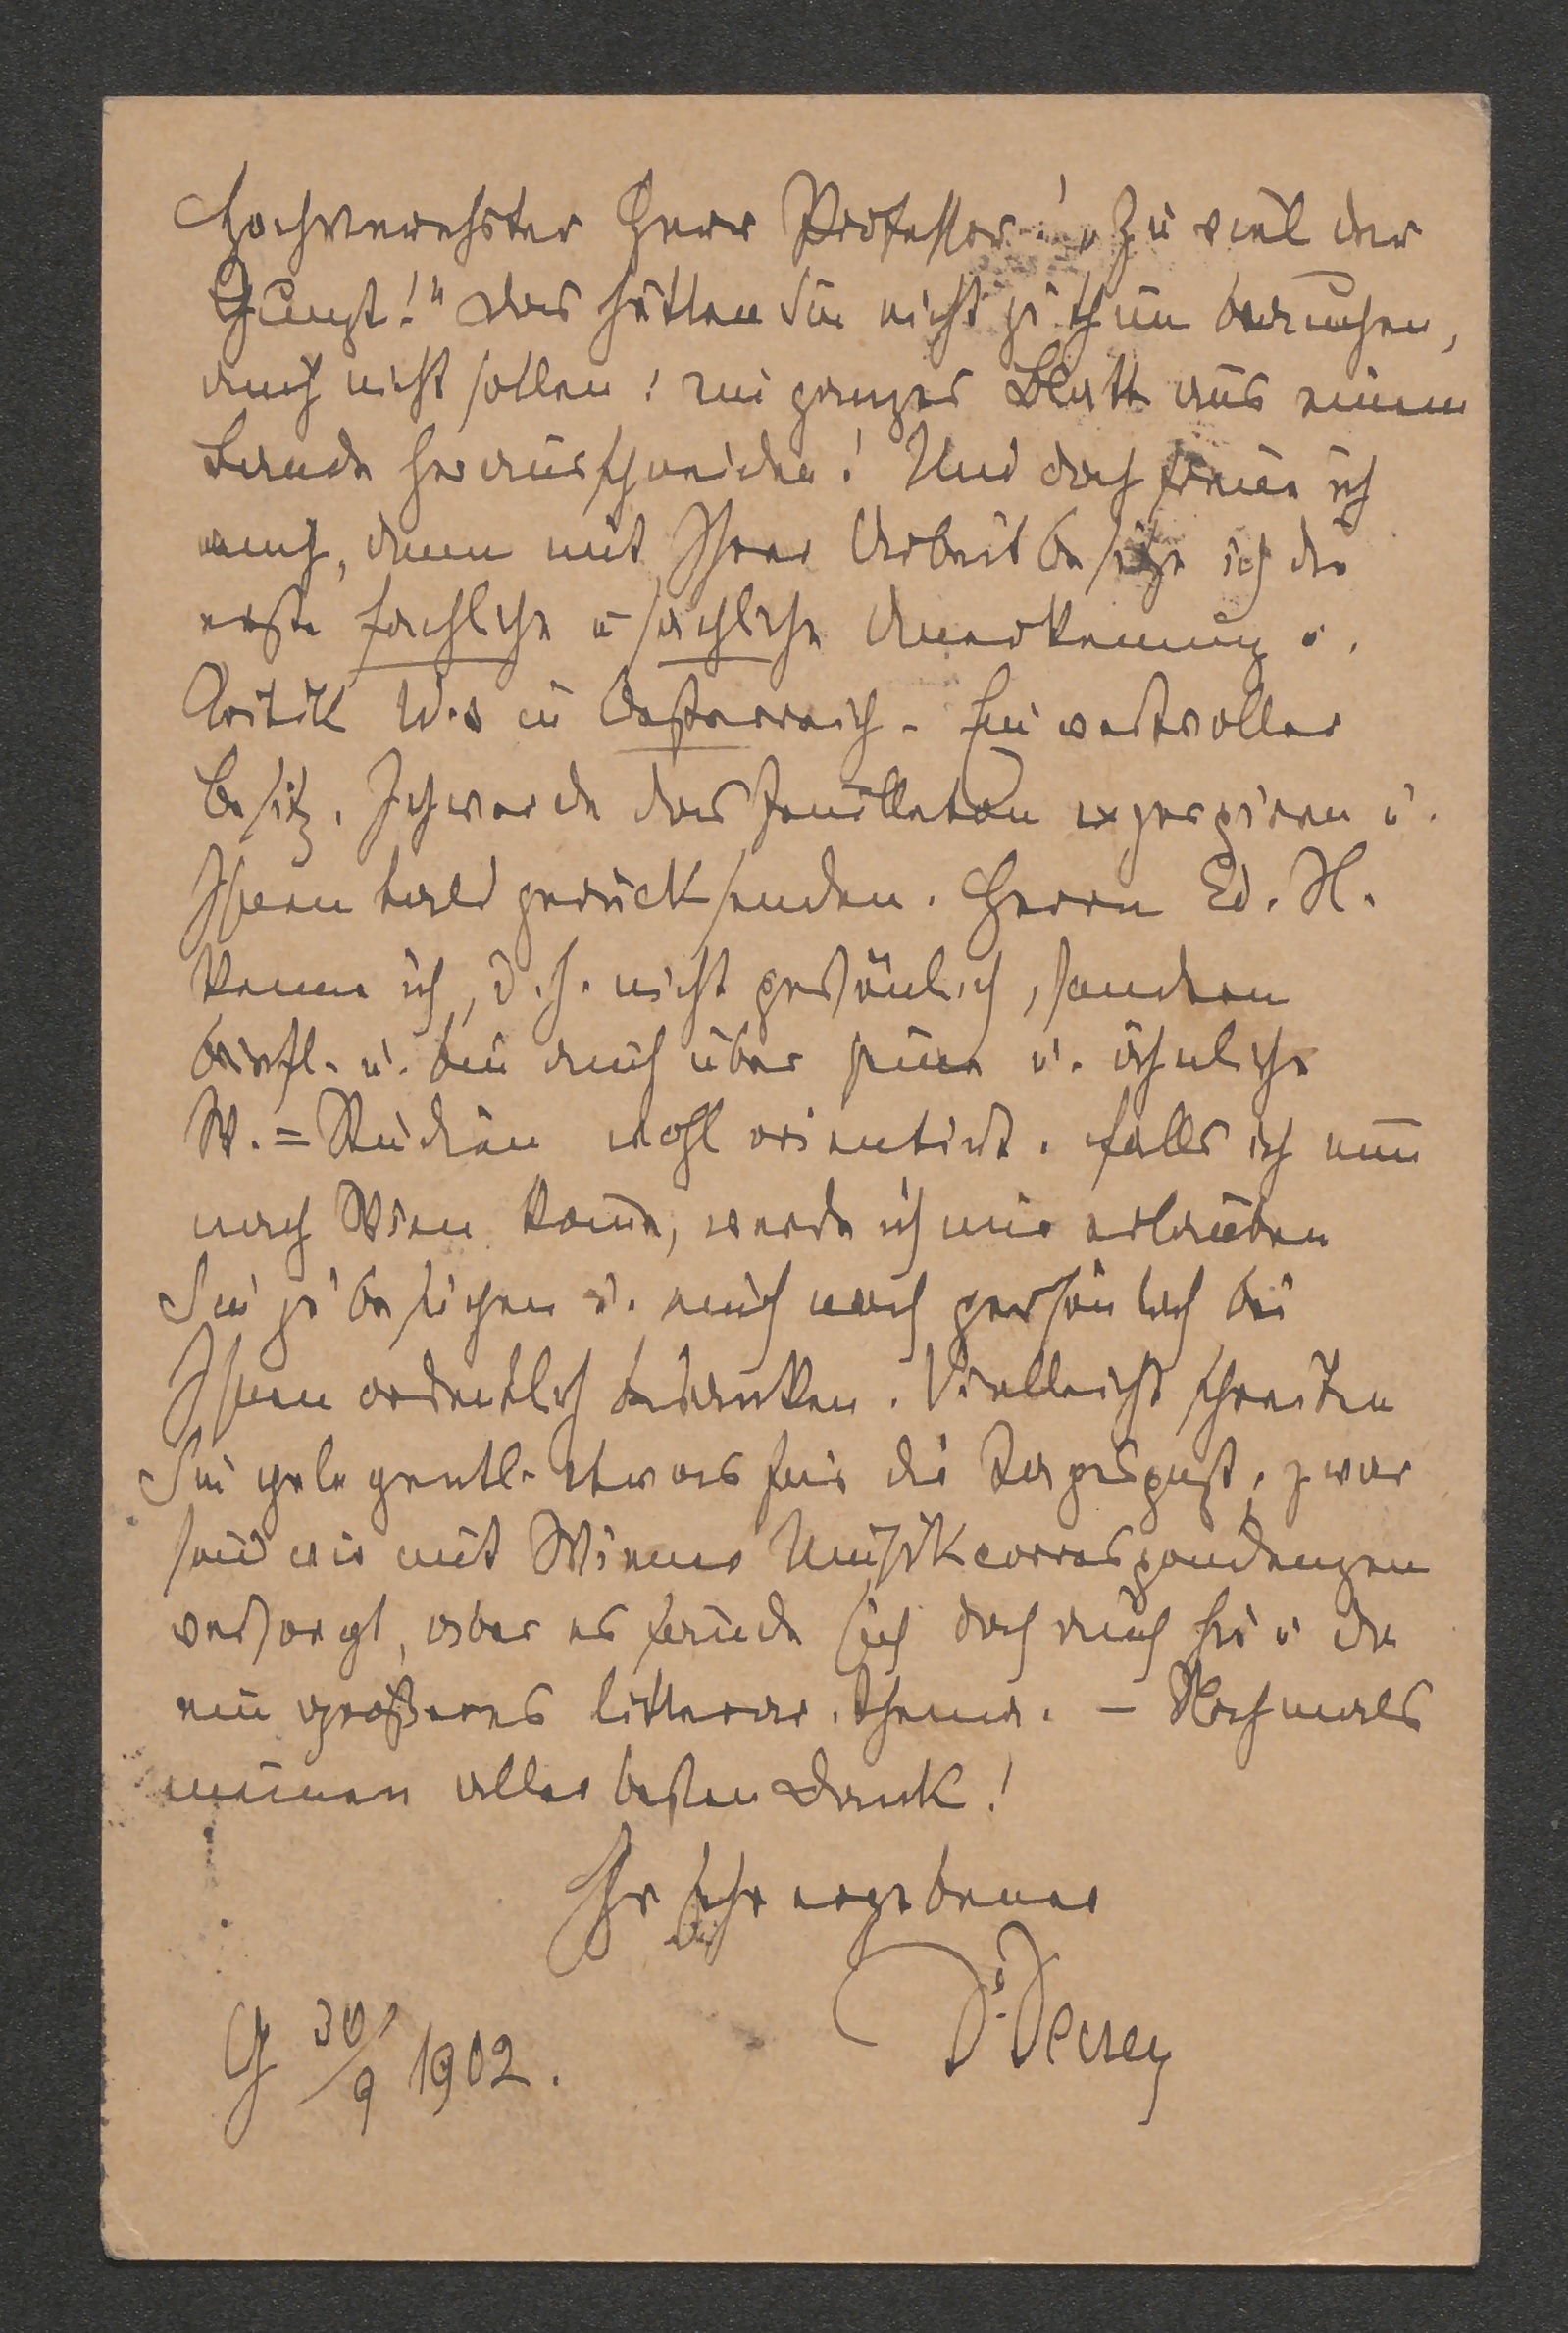 Hochverehrter Herr Professor! „Zu viel der
Gunst!" Das hätten Sie nicht zu thun brauchen,
auch nicht sollen: ein ganzes Blatt aus einem
Bande herausschneiden! Und doch freue ich
mich, denn mit Ihrer Arbeit besitze ich die
erste fachliche u sachliche Anerkennung u.
Kritik W.s in Oesterreich. Ein wertvoller
Besitz. Ich werde das Feuilleton exzerpiren u.
Ihnen bald zurücksenden. Herrn Ed. H.
kenne ich, d. h. nicht persönlich, sondern
briefl. u. bin auch über seine u. ähnliche
W.=Studien wohl orientirt. Falls ich nun
nach Wien komme, werde ich mir erlauben
Sie zu besuchen u. mich noch persönlich bei
Ihnen ordentlich bedanken. Vielleicht schreiben
Sie gelegentl. etwas für die Tagespost, zwar
sind wir mit Wiener Musikcorrespondenzen
versorgt, aber es fände sich doch auch hie u da
ein größeres litterar. Thema. – Nochmals
meinen allerbesten Dank!
Ihr sehr ergebener
Dr. Decsey
G 30/9 1902.